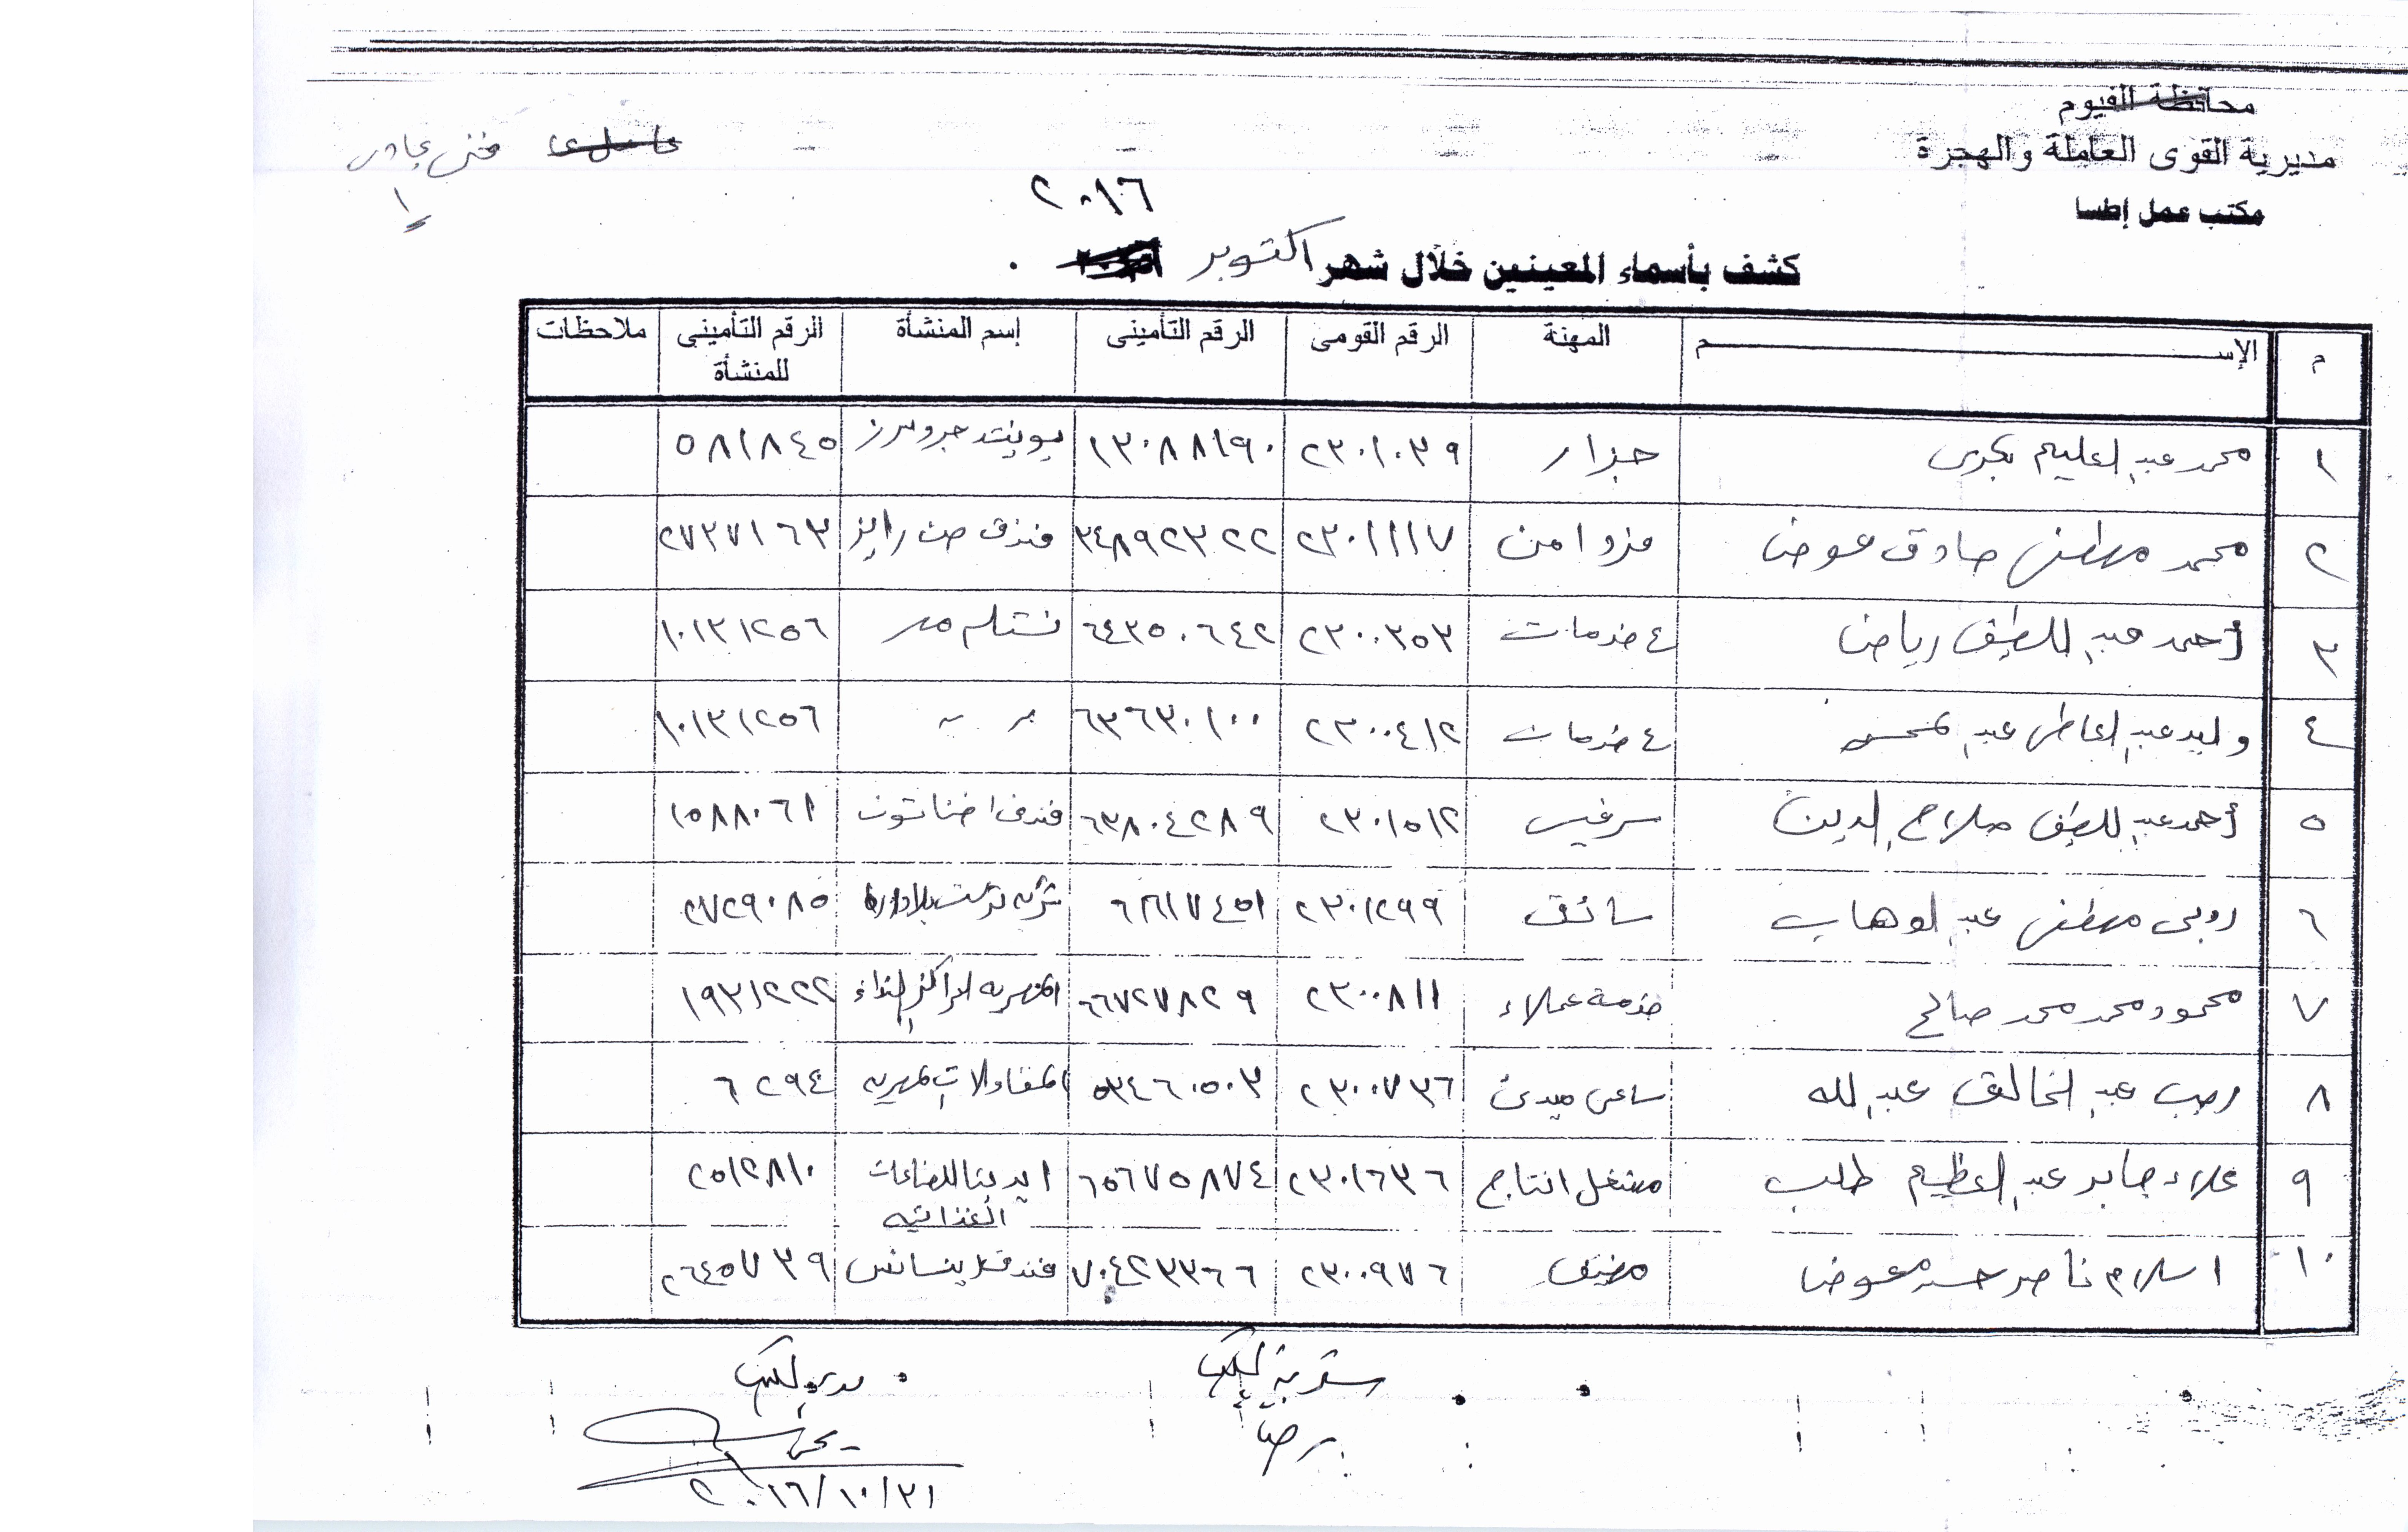 محافظة الفيوم
مديرية القوى العاملة والهجرة
مكتب عمل إطسا
فنى عادى
١
٢٠١٦
كشف بأسماء المعينين خلال شهر اكتوبر
م الإســـم المهنة الرقم القومى الرقم التأمينى إسم المنشأة الرقم التأمينى للمنشأة ملاحظات
١ محمد عبد العليم بكرى جزار ٢٣٠١٠٣٩ ١٣٠٨٨١٩٠ يونيتد جروسرز ٥٨١٨٤٥
٢ محمد مصطفى صادق عوض فرد امن ٢٣٠١١١٧ ٣٤٨٩٢٣٢٢ فندق صن رايز ٢٧٣٧١٦٣
٣ أحمد عبد اللطيف رياض ع خدمات ٢٣٠٠٣٥٣ ٦٤٣٥٠٦٤٢ نستله مصر ١٠١٣١٢٥٦
٤ وليد عبد العاطى عبد المحسن ع خدمات ٢٣٠٠٤١٢ ٦٣٦٣٠١٠٠ ١٠١٣١٢٥٦
٥ أحمد عبد اللطيف صلاح الدين سرفيس ٢٣٠١٥١٢ ٦٣٨٠٤٢٨٩ فندق اخناتون ١٥٨٨٠٦١
٦ روبى مصطفى عبد الوهاب سائق ٢٣٠١٢٩٩ ٦٦١٧٤٥١ شركه ٢٧٢٩٠٨٥
٧ محمود محمد محمد صالح خدمة عملاء ٢٣٠٠٨١١ ٦٦٧٢٧٨٢٩ المصريه لمراكز النداء ١٩٣١٢٢٢
٨ رجب عبد الخالق عبد الله ساعى ميدى ٢٣٠٠٧٣٦ ٥٣٤٦٠٥٠٣ المقاولات المصريه ٦٢٩٤
٩ علاء جابر عبد العظيم طلب مشغل انتاج ٢٣٠١٦٣٦ ٦٥٦٧٥٨٧٤ ايديتا للصناعات الغذائيه ٢٥١٢٨١٠
١٠ اسلام ناصر حسن معوض مضيف ٢٣٠٠٩٧٦ ٧٠٤٢٣٣٦٦ فندق رينسانس ٢٦٤٥٧٣٩
مدير المكتب
٢٠١٦/١٠/٣١